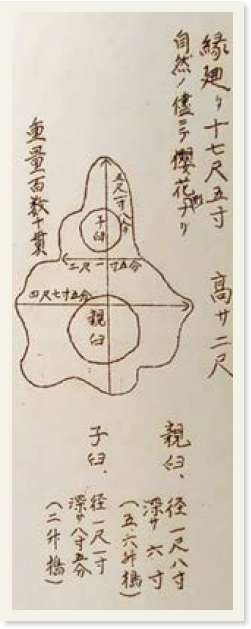 縁廻り十七尺五寸 高サ二尺
自然ノ儘ニテ櫻花ナリ
重量百数十貫
五尺一寸八分
子臼
二尺一寸五分
四尺七寸五分
親臼
親臼、径一尺八寸
深サ六寸
(五、六升搗)
子臼、径一尺一寸
深サ八寸五分
(二升搗)